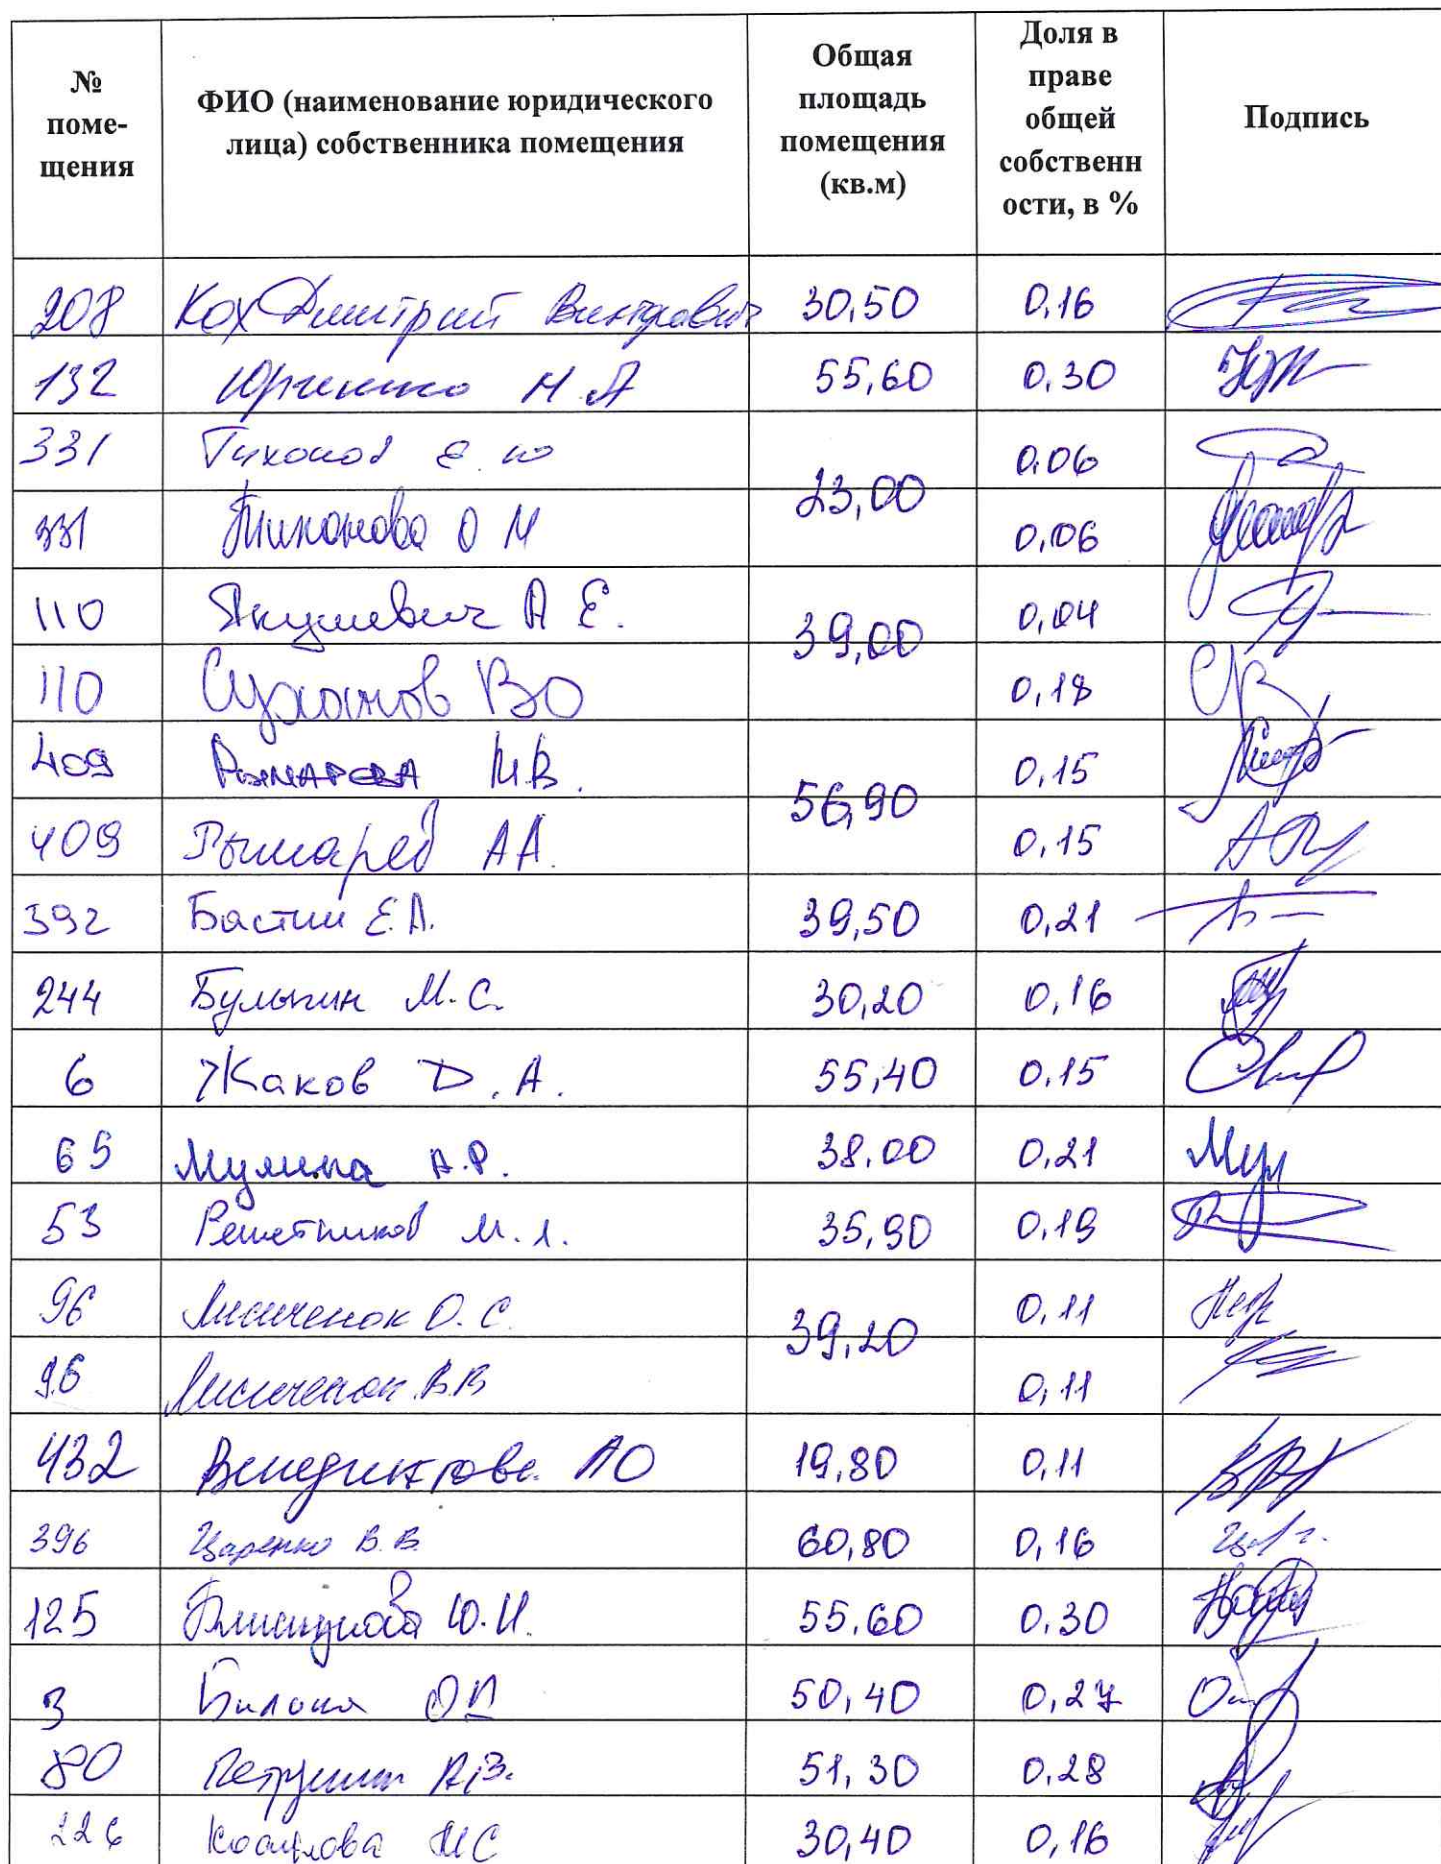 № поме-щения ФИО (наименование юридического лица) собственника помещения Общая площадь помещения (кв.м) Доля в праве общей собственн ости, в % Подпись
208 Кох Дмитрий Викторович 30,50 0,16
132 Юрченко Н.А 55,60 0,30
331 Тихонов Е.Ю 23,00 0,06
331 Тихонова О М 0,06
110 Якушевич А Е. 39,00 0,04
110 Суханов ВО 0,18
409 М.В. 56,90 0,15
409 Рымарев А.А. 0,15
392 Бастин Е.А. 39,50 0,21
244 Булыгин М.С. 30,20 0,16
6 Жаков Д.А. 55,40 0,15
65 А.Р. 38,00 0,21 Мул
53 Решетников М.Л. 35,90 0,19
96 Лисиченок О.С. 39,20 0,11
96 Лисиченок В.В 0,11
432 Венедиктова АО 19,80 0,11
396 Царенко В.В. 60,80 0,16
125 Ю.И. 55,60 0,30
3 50,40 0,27
80 Петрушин А.В. 51,30 0,28
226 30,40 0,16